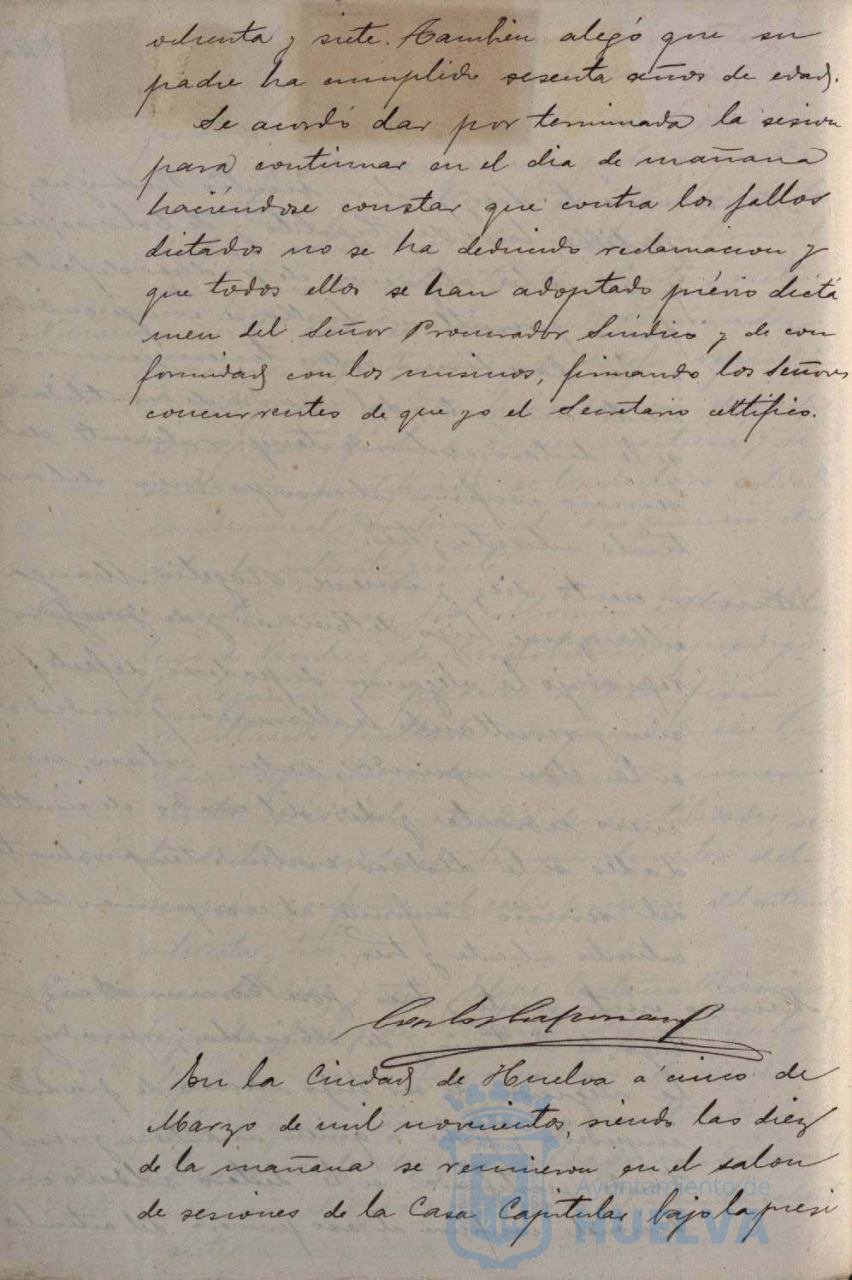 ochenta y siete. Tambien alegó que su
padre ha cumplido sesenta años de edad.
Se acordó dar por terminada la sesion
para continuar en el dia de mañana
haciéndose constar que contra los fallos
dictados no se ha deducido reclamacion y
que todos ellos se han adoptado prévio dictá
men del Señor Procurador Sindico y de con
formidad con los mismos, firmando los Señores
concurrentes de que yo el Secretario certifico.
En la Ciudad de Huelva a cinco de
Marzo de mil novecientos, siendo las diez
de la mañana se reunieron en el salon
de sesiones de la Casa Capitular bajo la presi
Ayuntamiento de
HUELVA